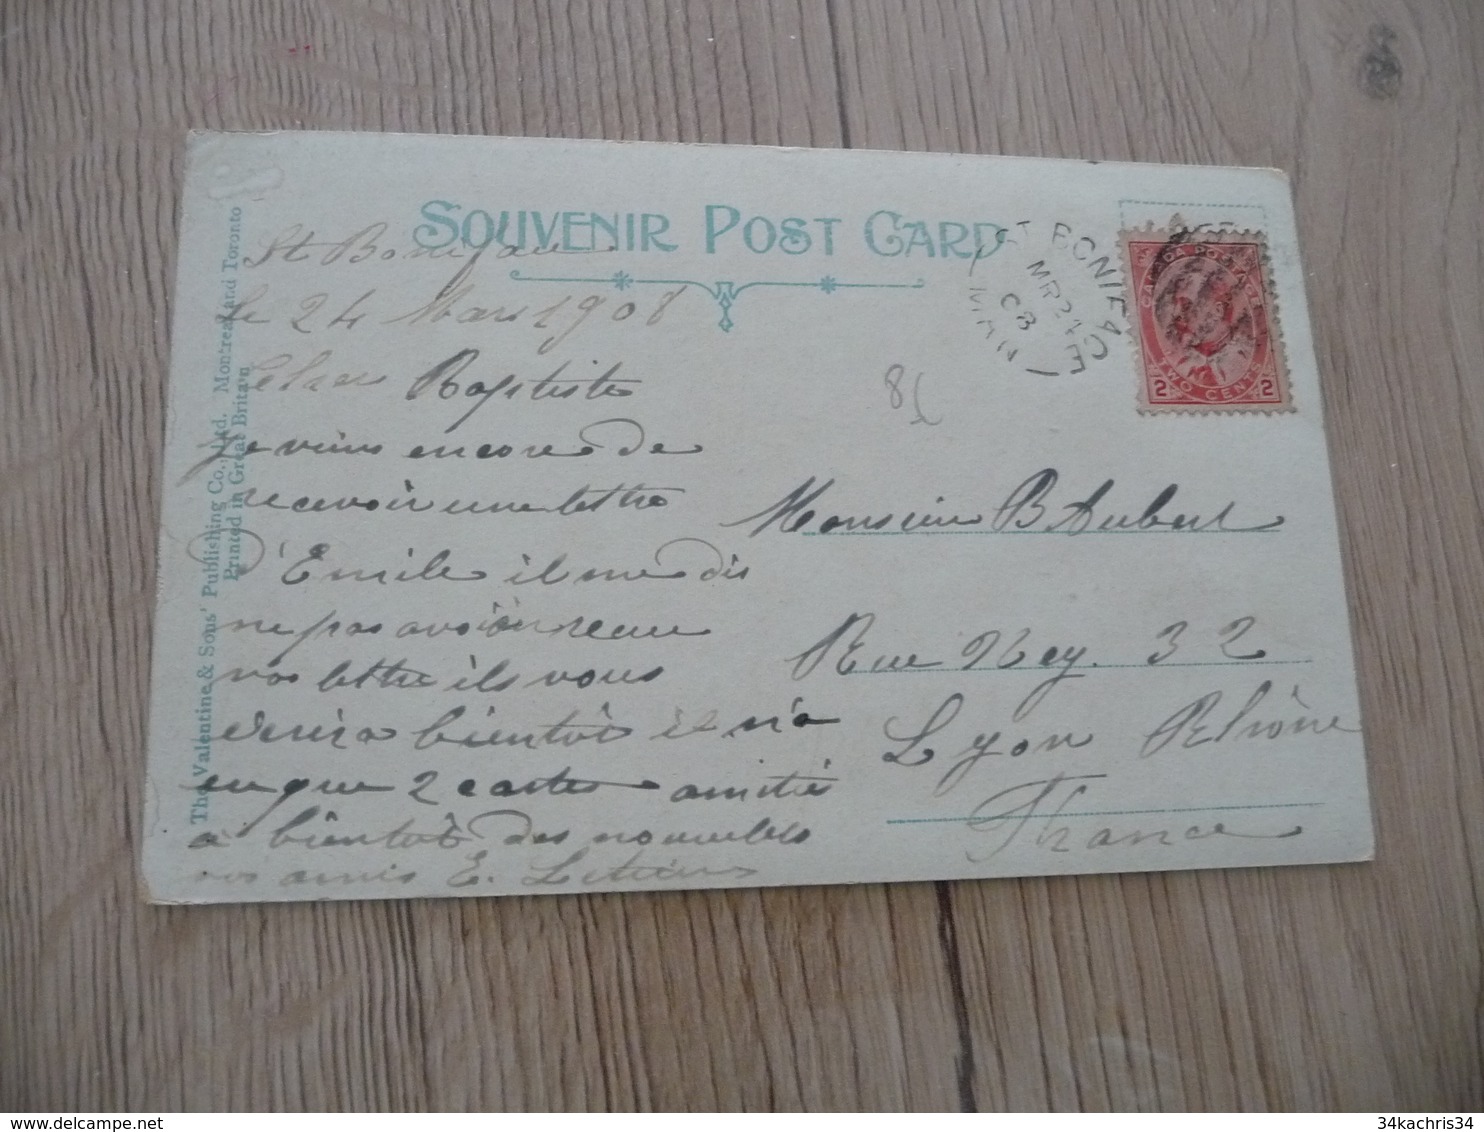 SOUVENIR POST CARD
The Valentine & Sons' Publishing Co., Ltd. Montreal and Toronto
Printed in Great Britain
St Boniface
le 24 Mars 1908
Baptiste
Je viens encore de
recevoir une lettre
D'Emile il me dis
ne pas avoir recu
vos lettre ils vous
écrira bientôt il n'a
eu que 2 cartes amitié
a bientôt des nouvelles
vos amis E.
ST BONIFACE
MR 24
08
MAN
CANADA POSTAGE
2 TWO CENTS 2
8f
Monsieur B Aubert
Rue Ney. 32
Lyon Rhône
France
34kachris34